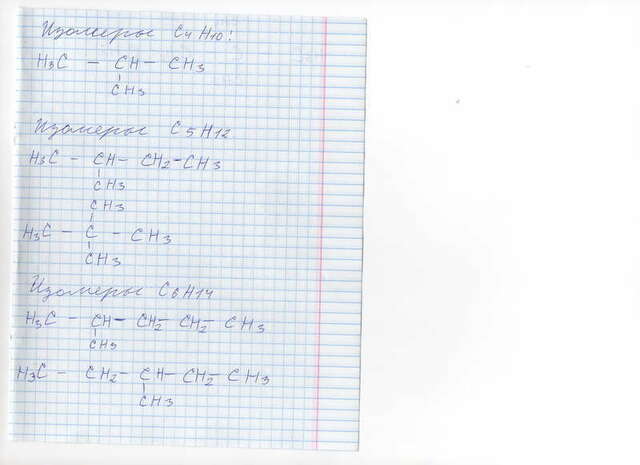 Изомеры C4H10:
H3C – CH – CH3
CH3
Изомеры C5H12
H3C – CH – CH2 – CH3
CH3
CH3
H3C – C – CH3
CH3
Изомеры C6H14
H3C – CH – CH2 – CH2 – CH3
CH3
H3C – CH2 – CH – CH2 – CH3
CH3